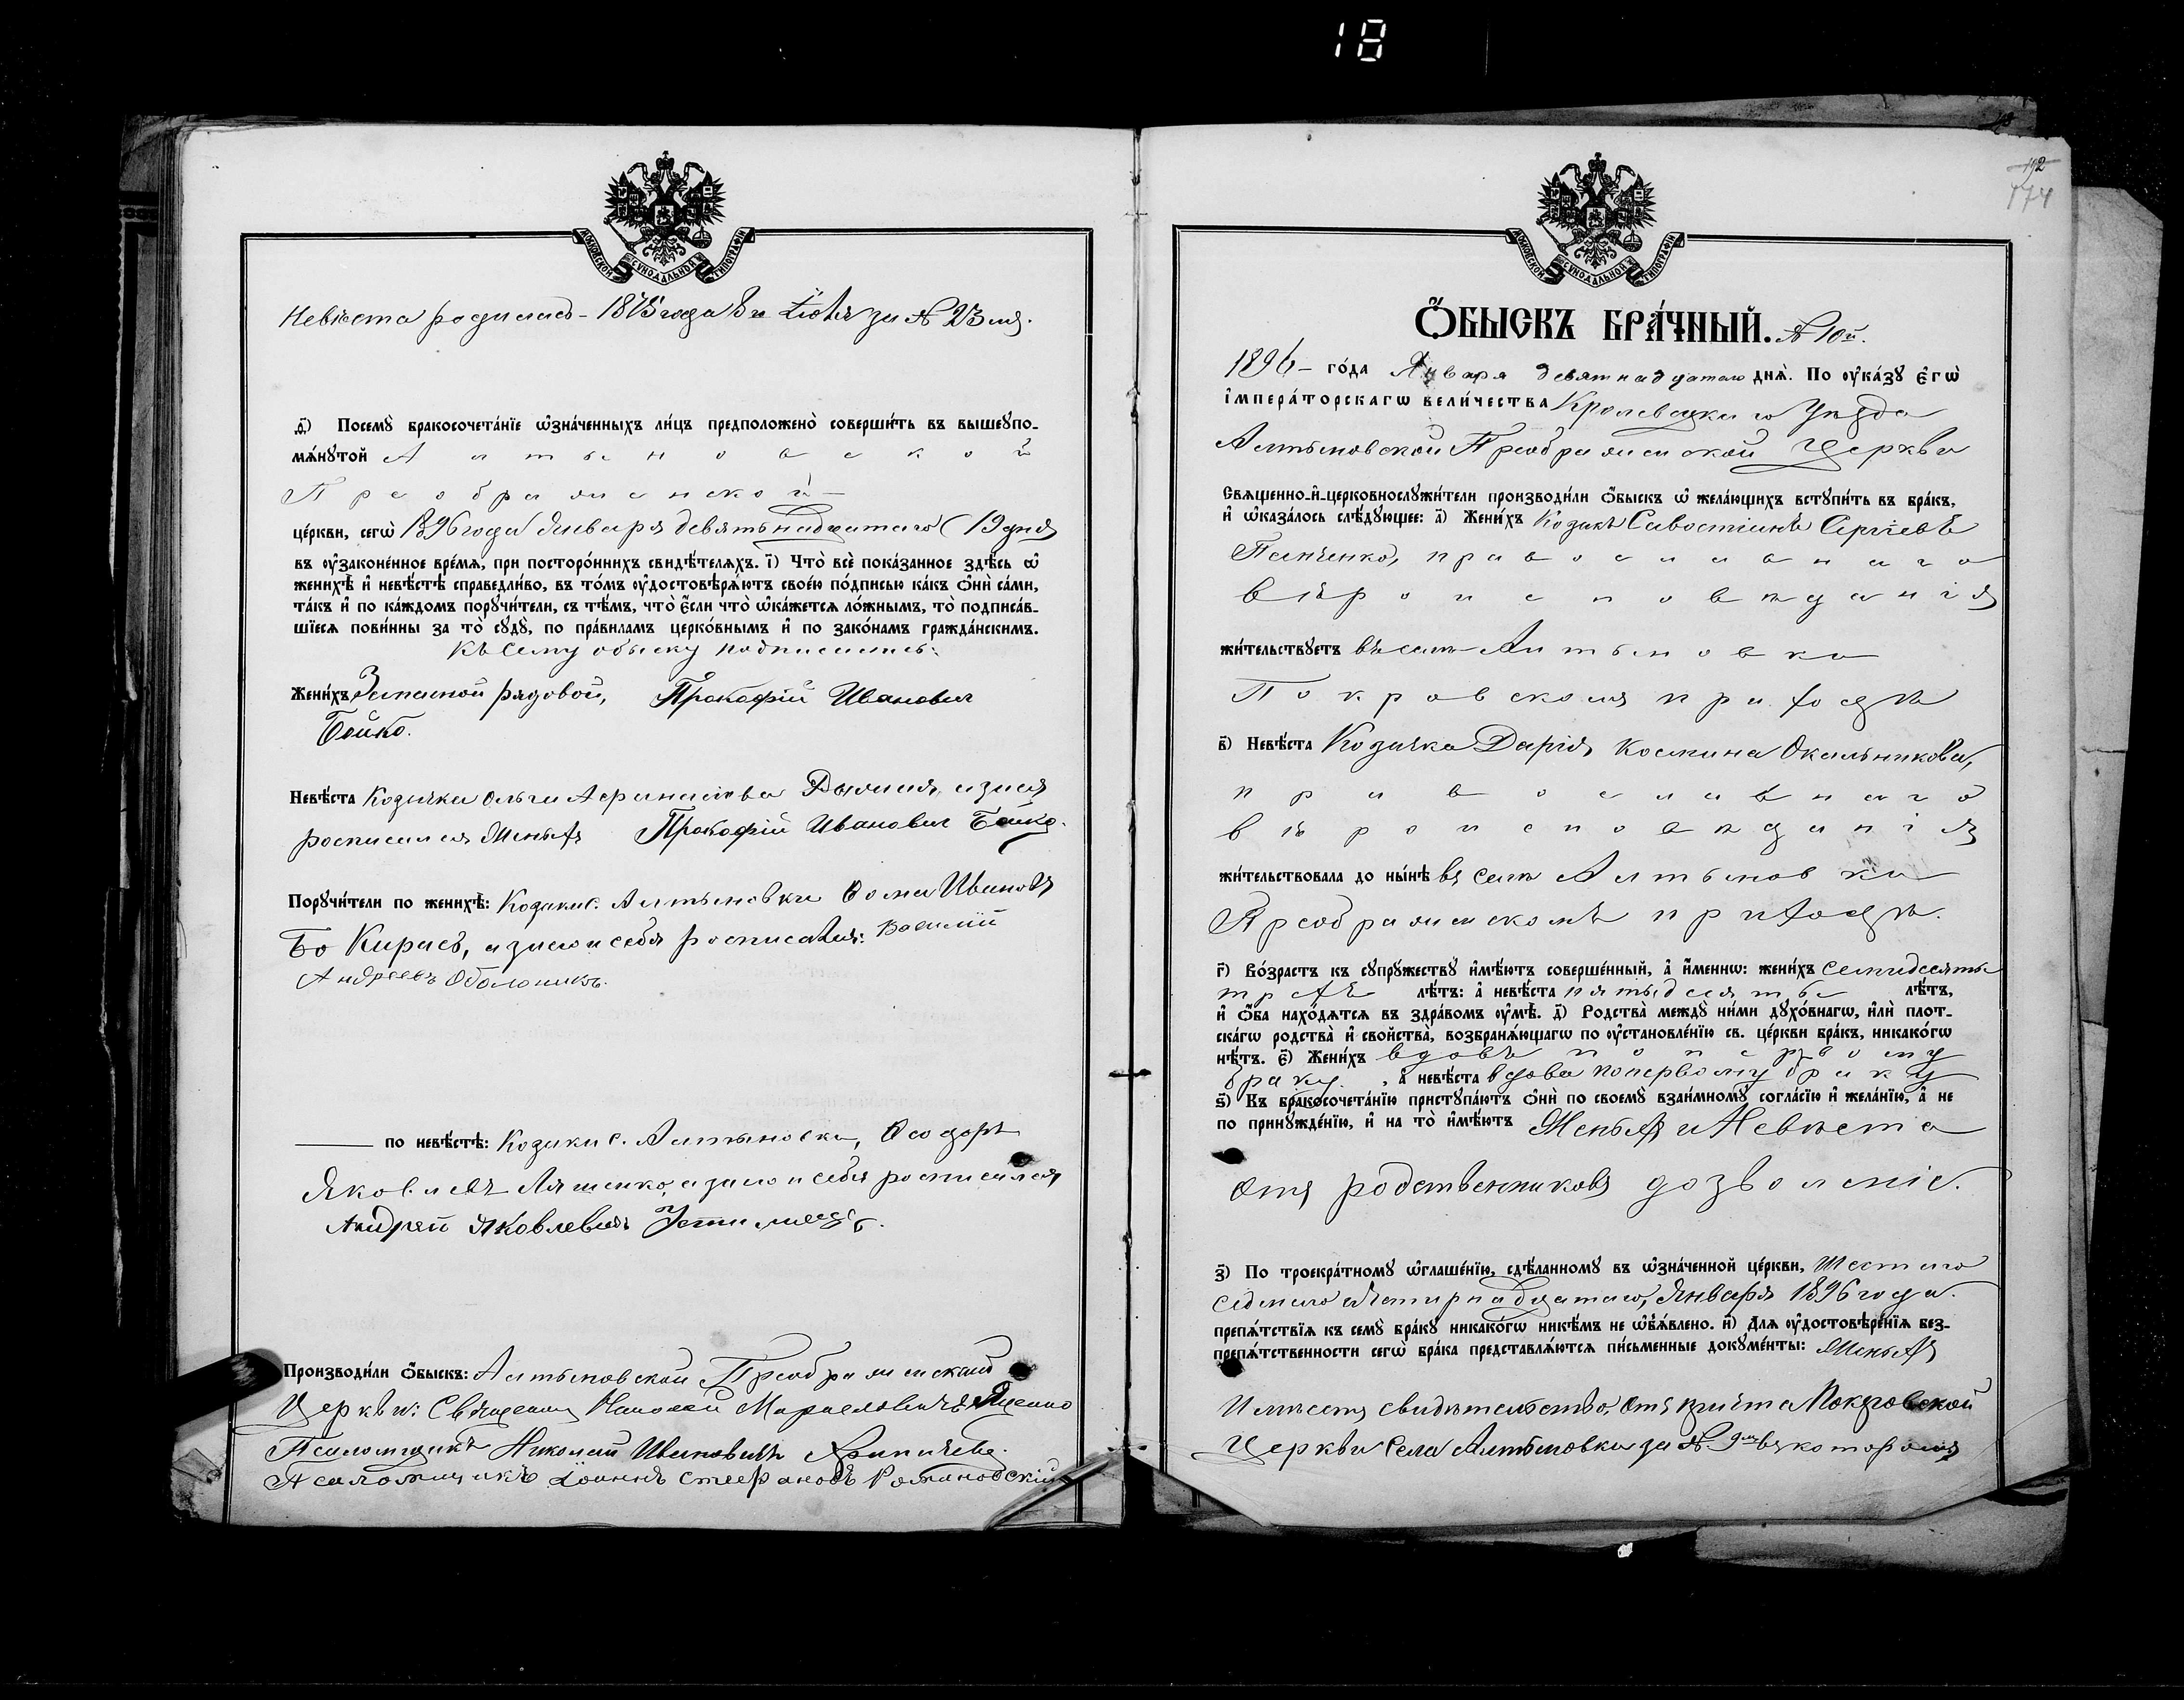 18
МОСКОВСКОЙ СѴНОДАЛЬНОЙ ТИПОГРАФІИ
Невѣста родилась - 1875 года 8 го Іюля за № 23 мъ.
д҃) Посемꙋ̀ бракосочета́нїе ѡ҆зна́ченныхъ ли́цъ предположено̀ соверши́ть въ вышеꙋпо-
мѧ́нꙋтой Алтыновской
Преображенской -
це́ркви, сегѡ̀ 1896 года Января девятьнадцатаго (19 дня
въ ᲂу҆зако́ненное вре́мѧ, при посторо́ннихъ свидѣ́телѧхъ. і҃) Что̀ всѐ пока́занное здѣ́сь ѡ҆
женихѣ̀ и҆ невѣ́стѣ справедли́во, въ то́мъ ᲂу҆достовѣрѧ́ютъ свое́ю по́дписью ка́къ ѻ҆нѝ са́ми,
та́къ и҆ по ка́ждомъ порꙋчи́тели, съ тѣ́мъ, что̀ є҆́сли что̀ ѡ҆ка́жетсѧ ло́жнымъ, то̀ подписа́в-
шїесѧ пови́нны за то̀ сꙋдꙋ̀, по пра́виламъ церко́внымъ и҆ по зако́намъ гражда́нскимъ.
Къ сему обыску подписались:
Жени́хъ Запасной рядовой, Прокофій Иванович
Бойко.
Невѣ́ста Козачка Ольга Афанасіева а за нея
росписался Женихъ Прокофій Иванович Бойко.
Порꙋчи́тели по женихѣ̀: Козаки с. Алтыновки Ѳома Ивановъ
а за него и себя росписался: Василій
Андреевъ Оболоникъ.
по невѣ́стѣ: Козаки с. Алтыновки, Ѳеодоръ
Яковлевъ Ляшенко, а за него и себя росписался
Андрей Яковлевичъ
Производи́ли ѻ҆́быскъ: Алтыновской Преображенской
Церкви: Священникъ Яценко
Псаломщикъ Николай Ивановичъ
Псаломщикъ Іоаннъ Стефановъ Романовскій
192
174
Ѻ҆́БЫСКЪ БРА́ЧНЫЙ. № 10 й.
1896 - го́да Января девятнадцатаго днѧ̀. По ᲂу҆ка́зꙋ Є҆гѡ̀
І҆мпера́торскагѡ Вели́чества Кролевецкаго Уѣзда
Алтыновской Преображенской Церкви
Свѧще́нно-и҆-церковнослꙋжи́тели производи́ли ѻ҆́быскъ ѡ҆ жела́ющихъ встꙋпи́ть въ бра́къ,
и҆ ѡ҆каза́лось слѣ́дꙋющее: а҃) Жени́хъ Козакъ Савостіянъ Сергіевъ
Панченко, православнаго
вѣроисповѣданія
жи́тельствꙋетъ въ селѣ Алтыновкѣ
Покровскомъ приходѣ
в҃) Невѣ́ста Козачка Дарія Космина Окольникова,
православнаго
вѣроисповѣданія
жи́тельствовала до ны́нѣ въ селѣ Алтыновкѣ
Преображенскомъ приходѣ.
г҃) Во́зрастъ къ сꙋпрꙋ́жествꙋ и҆мѣ́ютъ соверше́нный, а҆ и҆́меннѡ: жени́хъ семидесяти
трехъ лѣ́тъ: а҆ невѣ́ста пятьдесятъ лѣ́тъ,
и҆ ѻ҆́ба нахо́дѧтсѧ въ здра́вомъ ᲂу҆мѣ̀. д҃) Родства̀ междꙋ̀ ни́ми дꙋхо́внагѡ, и҆лѝ плот-
ска́гѡ родства̀ и҆ сво́йства̀, возбранѧ́ющагѡ по ᲂу҆становле́нїю св. це́ркви бра́къ, никако́гѡ
нѣ́тъ. є҃) Жени́хъ вдовъ по первому
браку, а҆ невѣ́ста вдова по первому браку
ѕ҃) Къ бракосочета́нїю пристꙋпа́ютъ ѻ҆нѝ по своемꙋ̀ взаи́мномꙋ согла́сїю и҆ жела́нїю, а҆ не
по принꙋжде́нїю, и҆ на то̀ и҆мѣ́ютъ Женихъ и Невѣста
отъ родственниковъ дозволеніе.
з҃) По троекра́тномꙋ ѡ҆глаше́нїю, сдѣ́ланномꙋ въ ѡ҆зна́ченной це́ркви, шестаго
седмаго и четырнадцатаго, Января 1896 года.
препѧ́тствїѧ къ семꙋ̀ бра́кꙋ никако́гѡ никѣ́мъ не ѡ҆б̾ѧ́влено. и҃) Длѧ ᲂу҆достовѣре́нїѧ без-
препѧ́тственности сегѡ̀ бра́ка представлѧ́ютсѧ пи́сьменные докꙋме́нты: Женихъ
Имѣетъ свидѣтельство, отъ причта Покровской
Церкви села Алтыновки за № 9 мъ въ которомъ